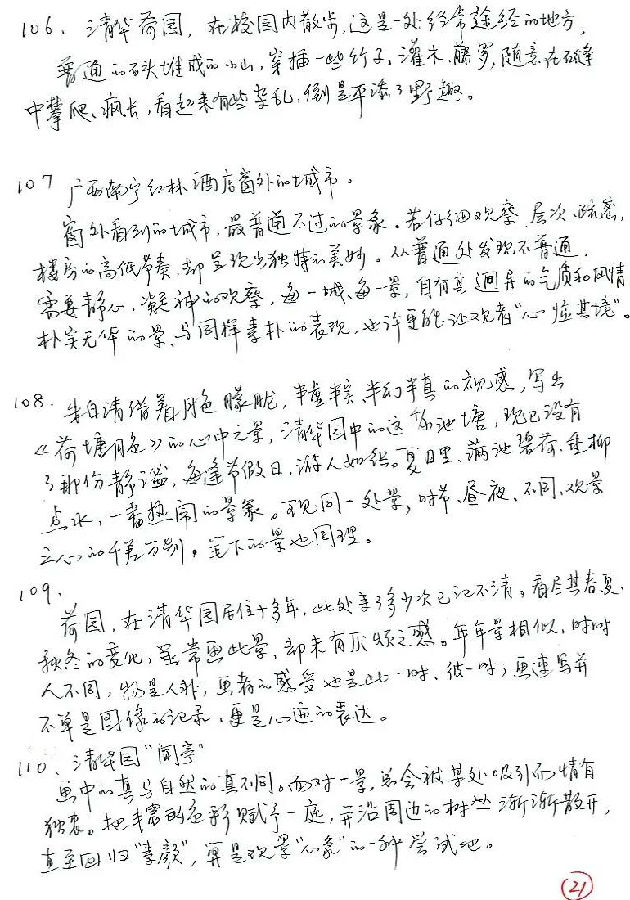 106、清华荷园，在校园内散步，这是一处经常途经的地方，
普通的石头堆成的小山，穿插一些竹子、灌木、藤萝，随意在石缝
中攀爬、疯长，看起来有些杂乱，倒是平添了野趣。
107 广西南宁红林酒店窗外的城市。
窗外看到的城市，最普通不过的景象。若仔细观察，层次、疏密，
楼房的高低节奏，却呈现出独特的美妙。从普通处发现不普通，
需要静心，凝神的观察，每一城、每一景，自有其迥异的气质和风情
朴实无华的景，与同样素朴的表现，也许更能让观者“心临其境”。
108、朱自清借着月色朦胧，半虚半实、半幻半真的观感，写出
《荷塘月色》的心中之景，清华园中的这池塘，现已没有
了那份静谧，每逢节假日，游人如织。夏日里、满池碧荷、垂柳
点水，一番热闹的景象。可见同一处景，时节、昼夜、不同，观景
之心的千差万别，笔下的景也同理。
109、
荷园，在清华园居住十多年，此处来了多少次已记不清。看尽其春夏
秋冬的变化，虽常画此景，却未有厌烦之感。年年景相似，时时
人不同，物是人非，画者的感受也是此一时、彼一时，画速写并
不单是图像的记录，更是心迹的表达。
110、清华园“闻亭”
画中的真与自然的真不同。面对一景，总会被某处吸引而情有
独衷。把丰富的色彩赋予一庭，并沿周边的树丛渐渐散开，
直至回归“素颜”，算是观景“心象”的一种尝试吧。
21